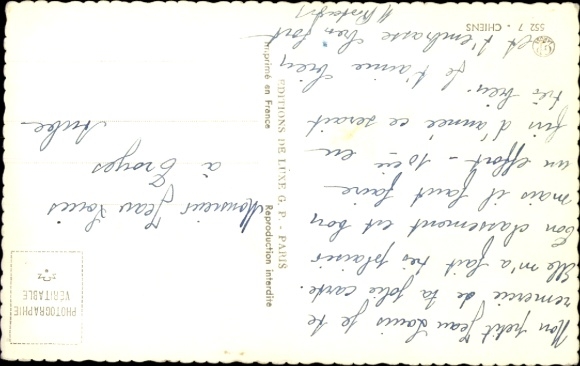 Mon petit Jean Louis je te
remercie de ta jolie carte.
Elle m'a fait très plaisir
bon classement est bon
mais il faut faire
un effort - 10e en
fin d'année ce serait
très bien.
Je t'aime bien
et t'embrasse bien fort
552 7 - CHIENS
EDITIONS DE LUXE G. P. - PARIS
Imprimé en France
Reproduction interdite
PHOTOGRAPHIE
VÉRITABLE
Monsieur Jean Louis
à Troyes
Aube